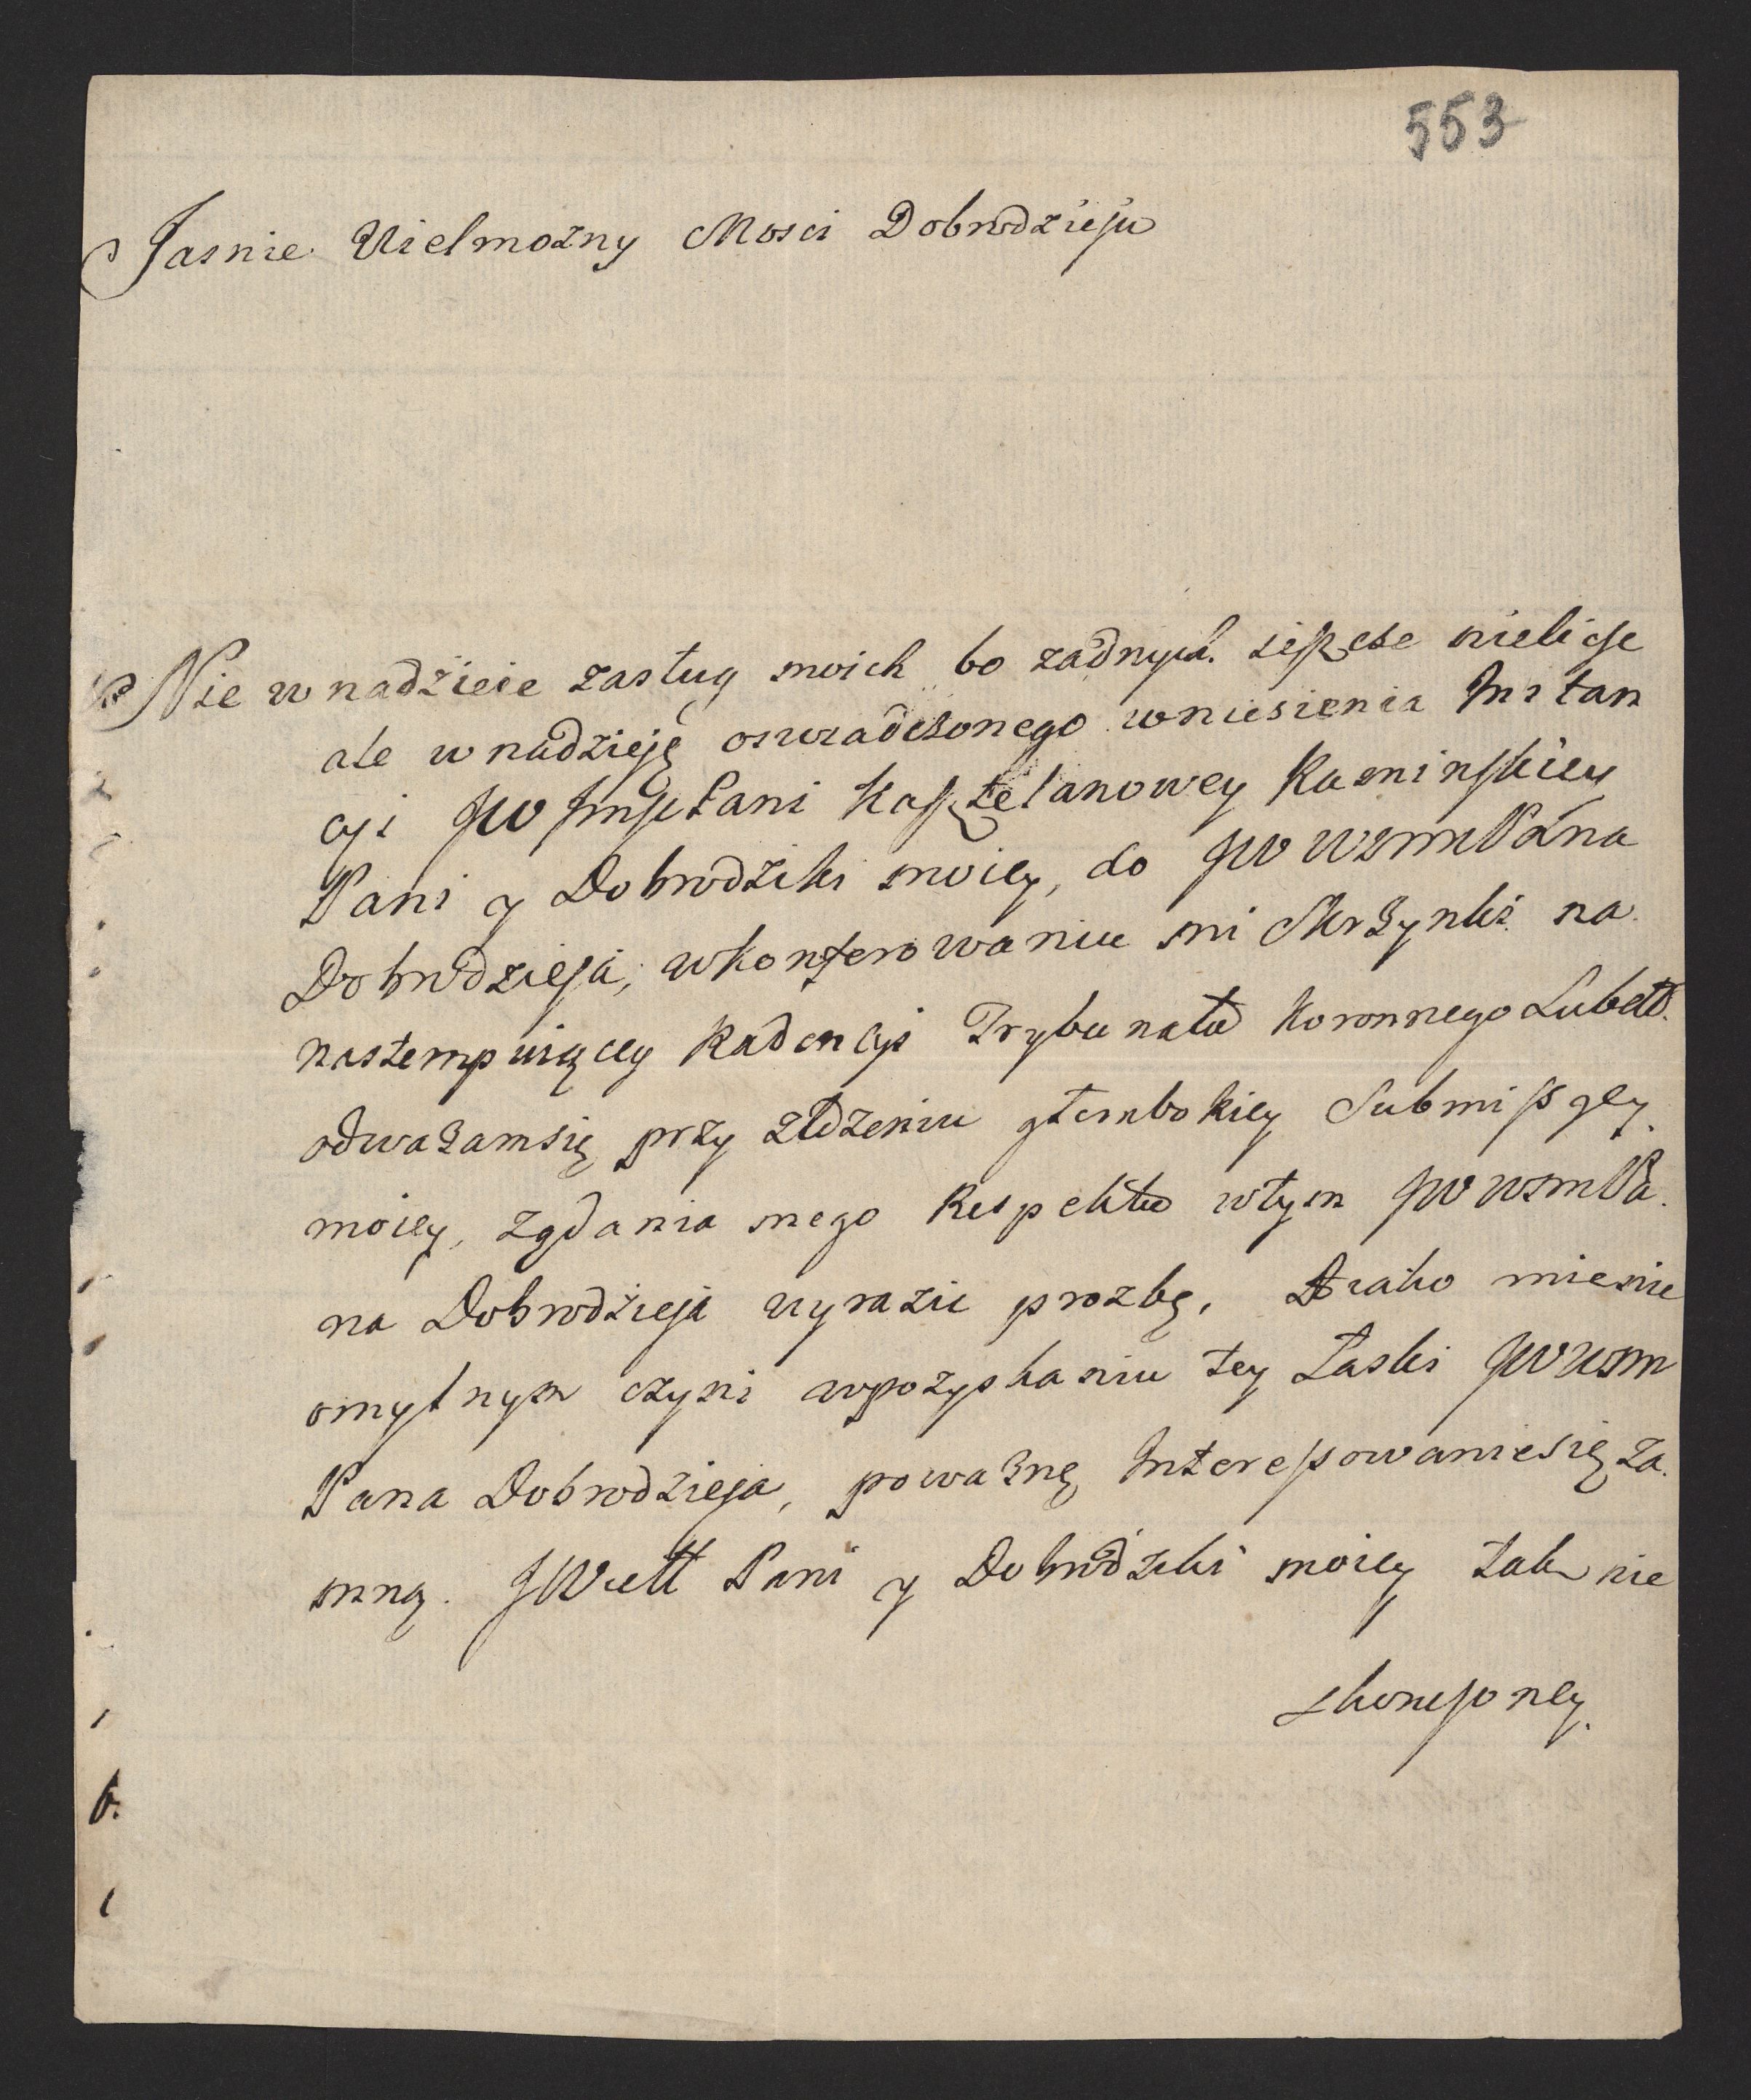 553
Jasnie Wielmozny Mosci Dobrodzieju
Nie w nadzieie zasług moich bo zadnych ieszcze nielicze
ale w nadzieję oswiadczonego wniesienia Instan
cyi JW Pani Kasztelanowey Kaminskiey
Pani y Dobrodziki moiey, do JW WMM Pana
Dobrodzieja, w konferowaniu mi Skrzynki na
nastempuiącey Kadencyi Trybunału Koronnego Lubell.
odwazamsię przy złozeniu głembokiey Submissyey
moiey, zgdania mego Respektu wtym JW WMM Pa
na Dobrodzieja wyrazic prozbę, iako mienie
omylnym czyni wpozyskaniu tey Łaski JW WMM
Pana Dobrodzieja, powaznę Interessowaniesię za
mną. JWiell Pani y Dobrodziki moiey tak nie